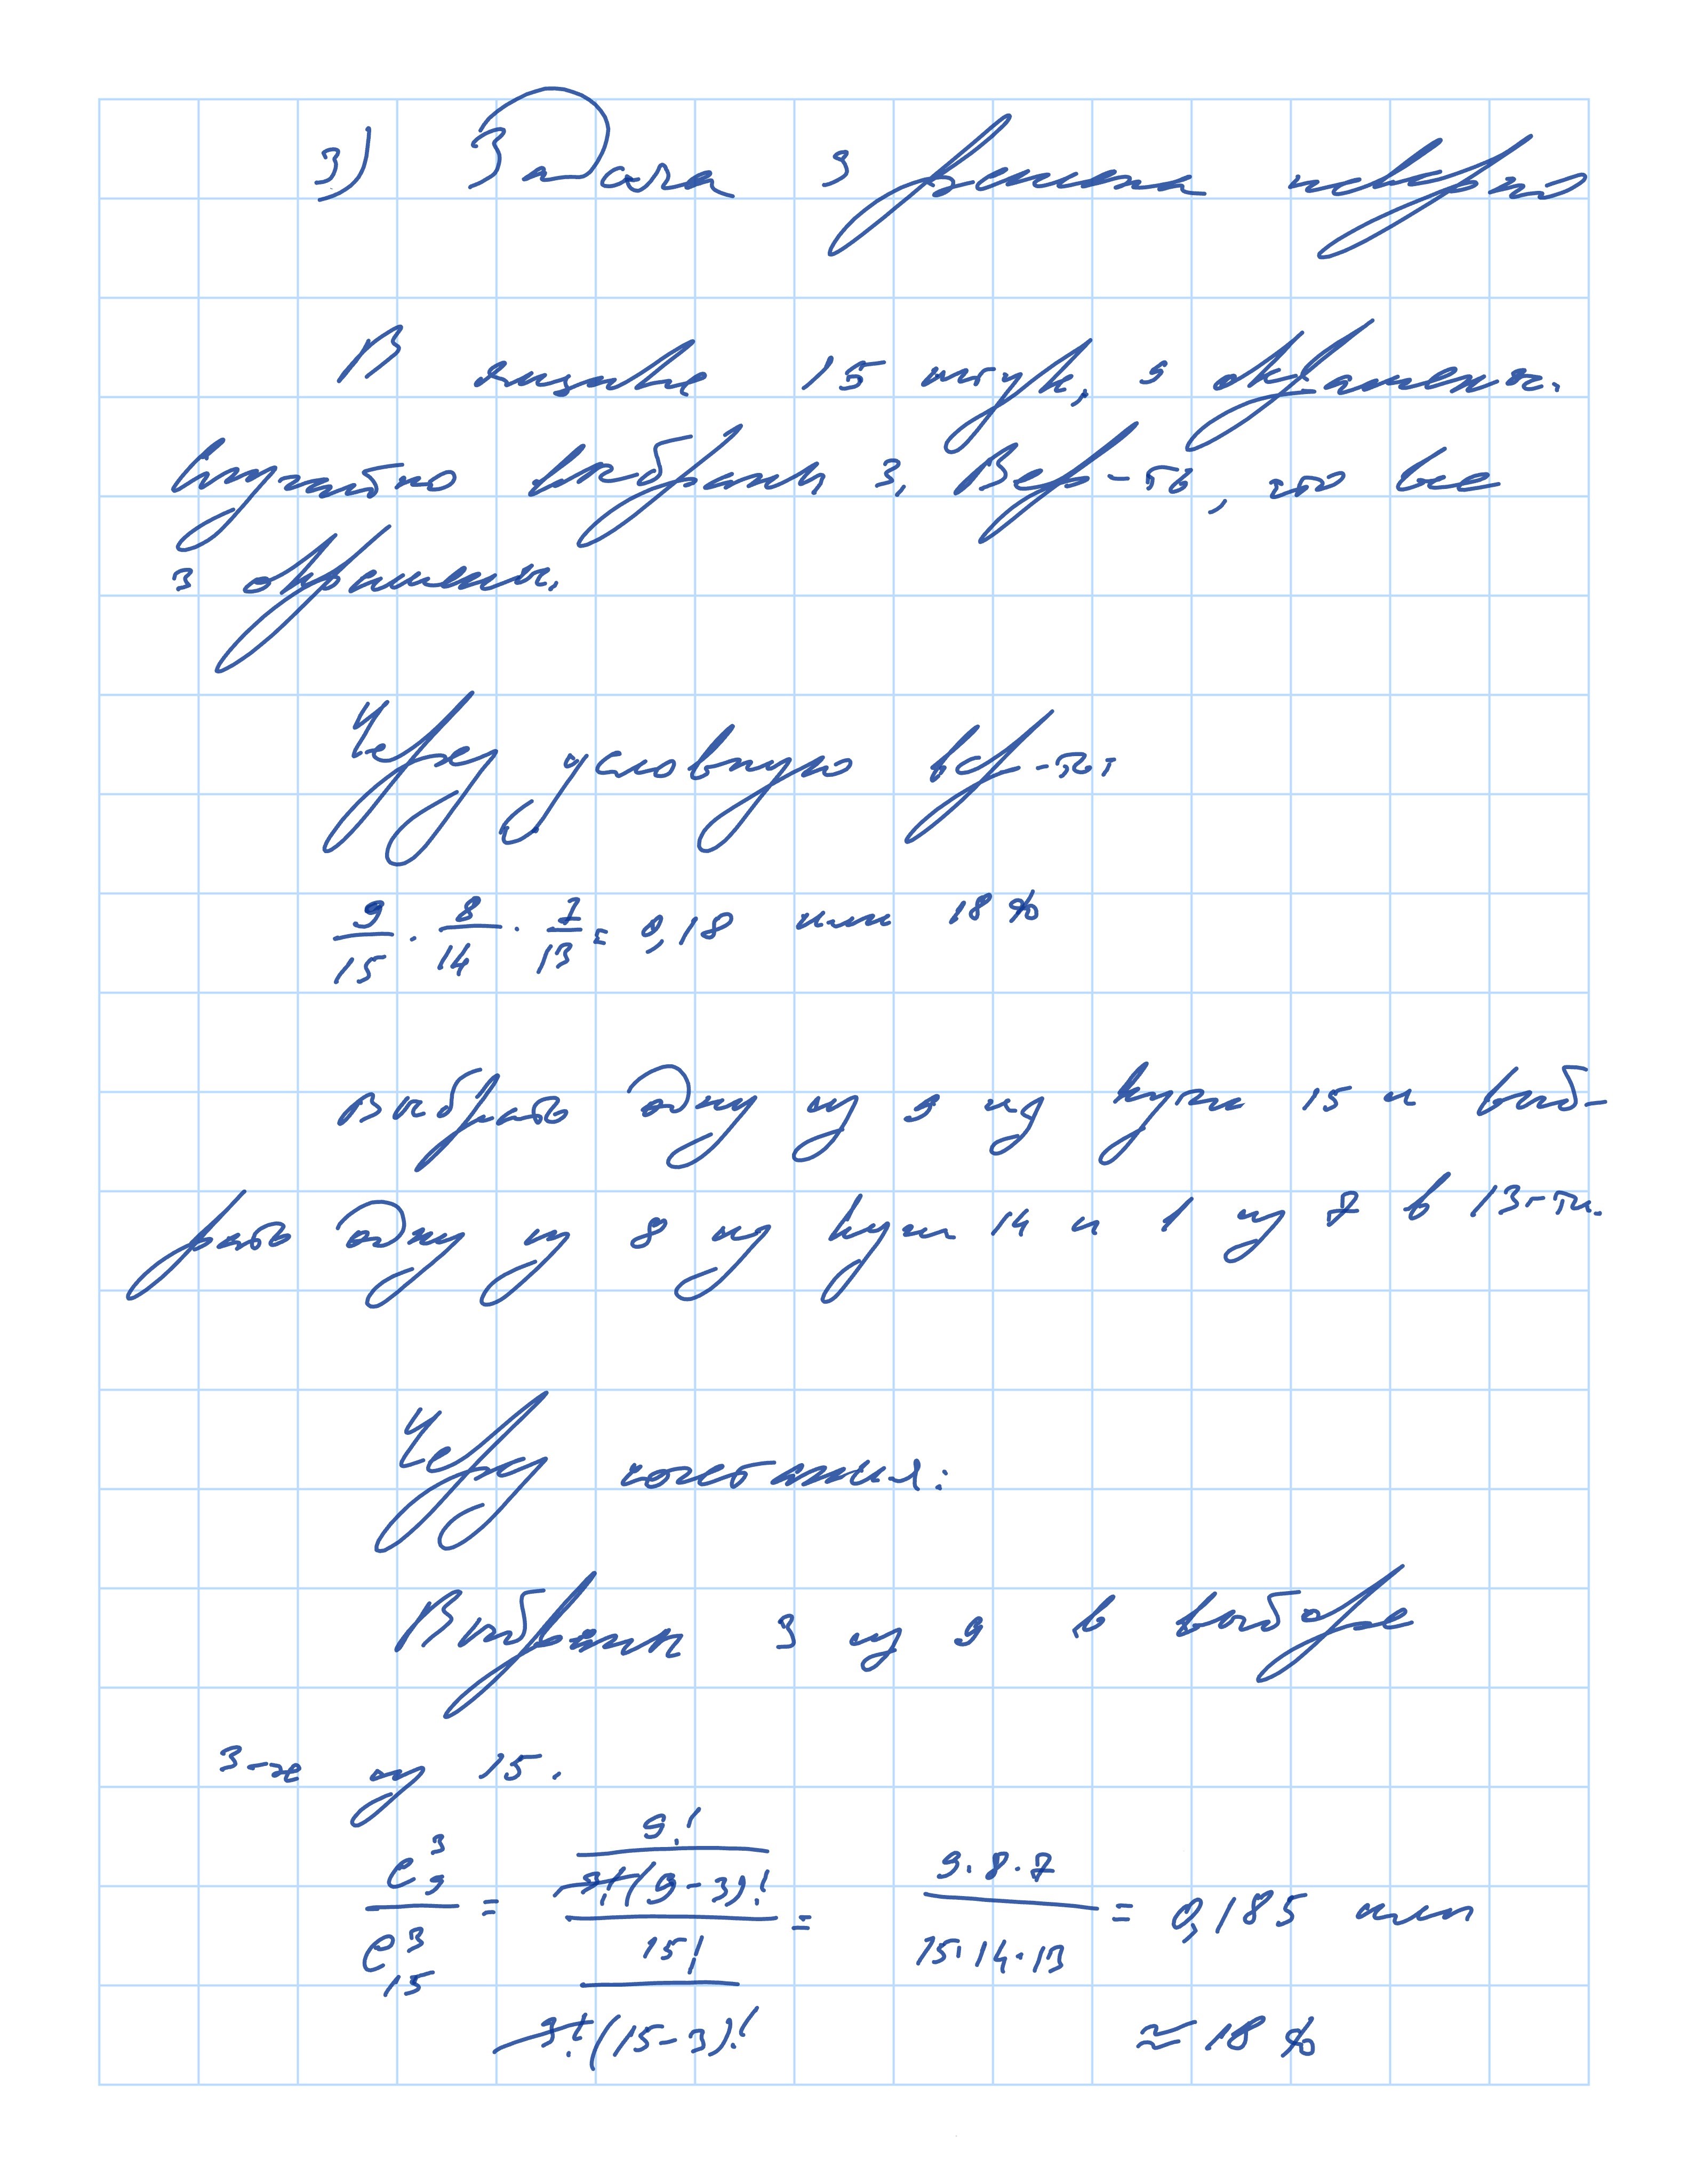 3) Задача 3 решена неверно
В ящике 15 штук, 9 окрашенных.
Вернуться выбрали 3. Вер-ть, что все
3 окрашенных.
Через условную вер-ть:
9/15 · 8/14 · 7/13 = 0,18 или 18 %
Выбрать одну из 9 из кучи 15 и выб-
рать одну из 8 из кучи 14 и 1 из 7 в 13-ти.
Через сочетания:
Выбрать 3 из 9 в выборе
3-ке из 15.
C₉³/C₁₅³ = (9!/(3!(9-3)!))/(15!/(3!(15-3)!)) = (9·8·7)/(15·14·13) = 0,185 или
≈ 18 %